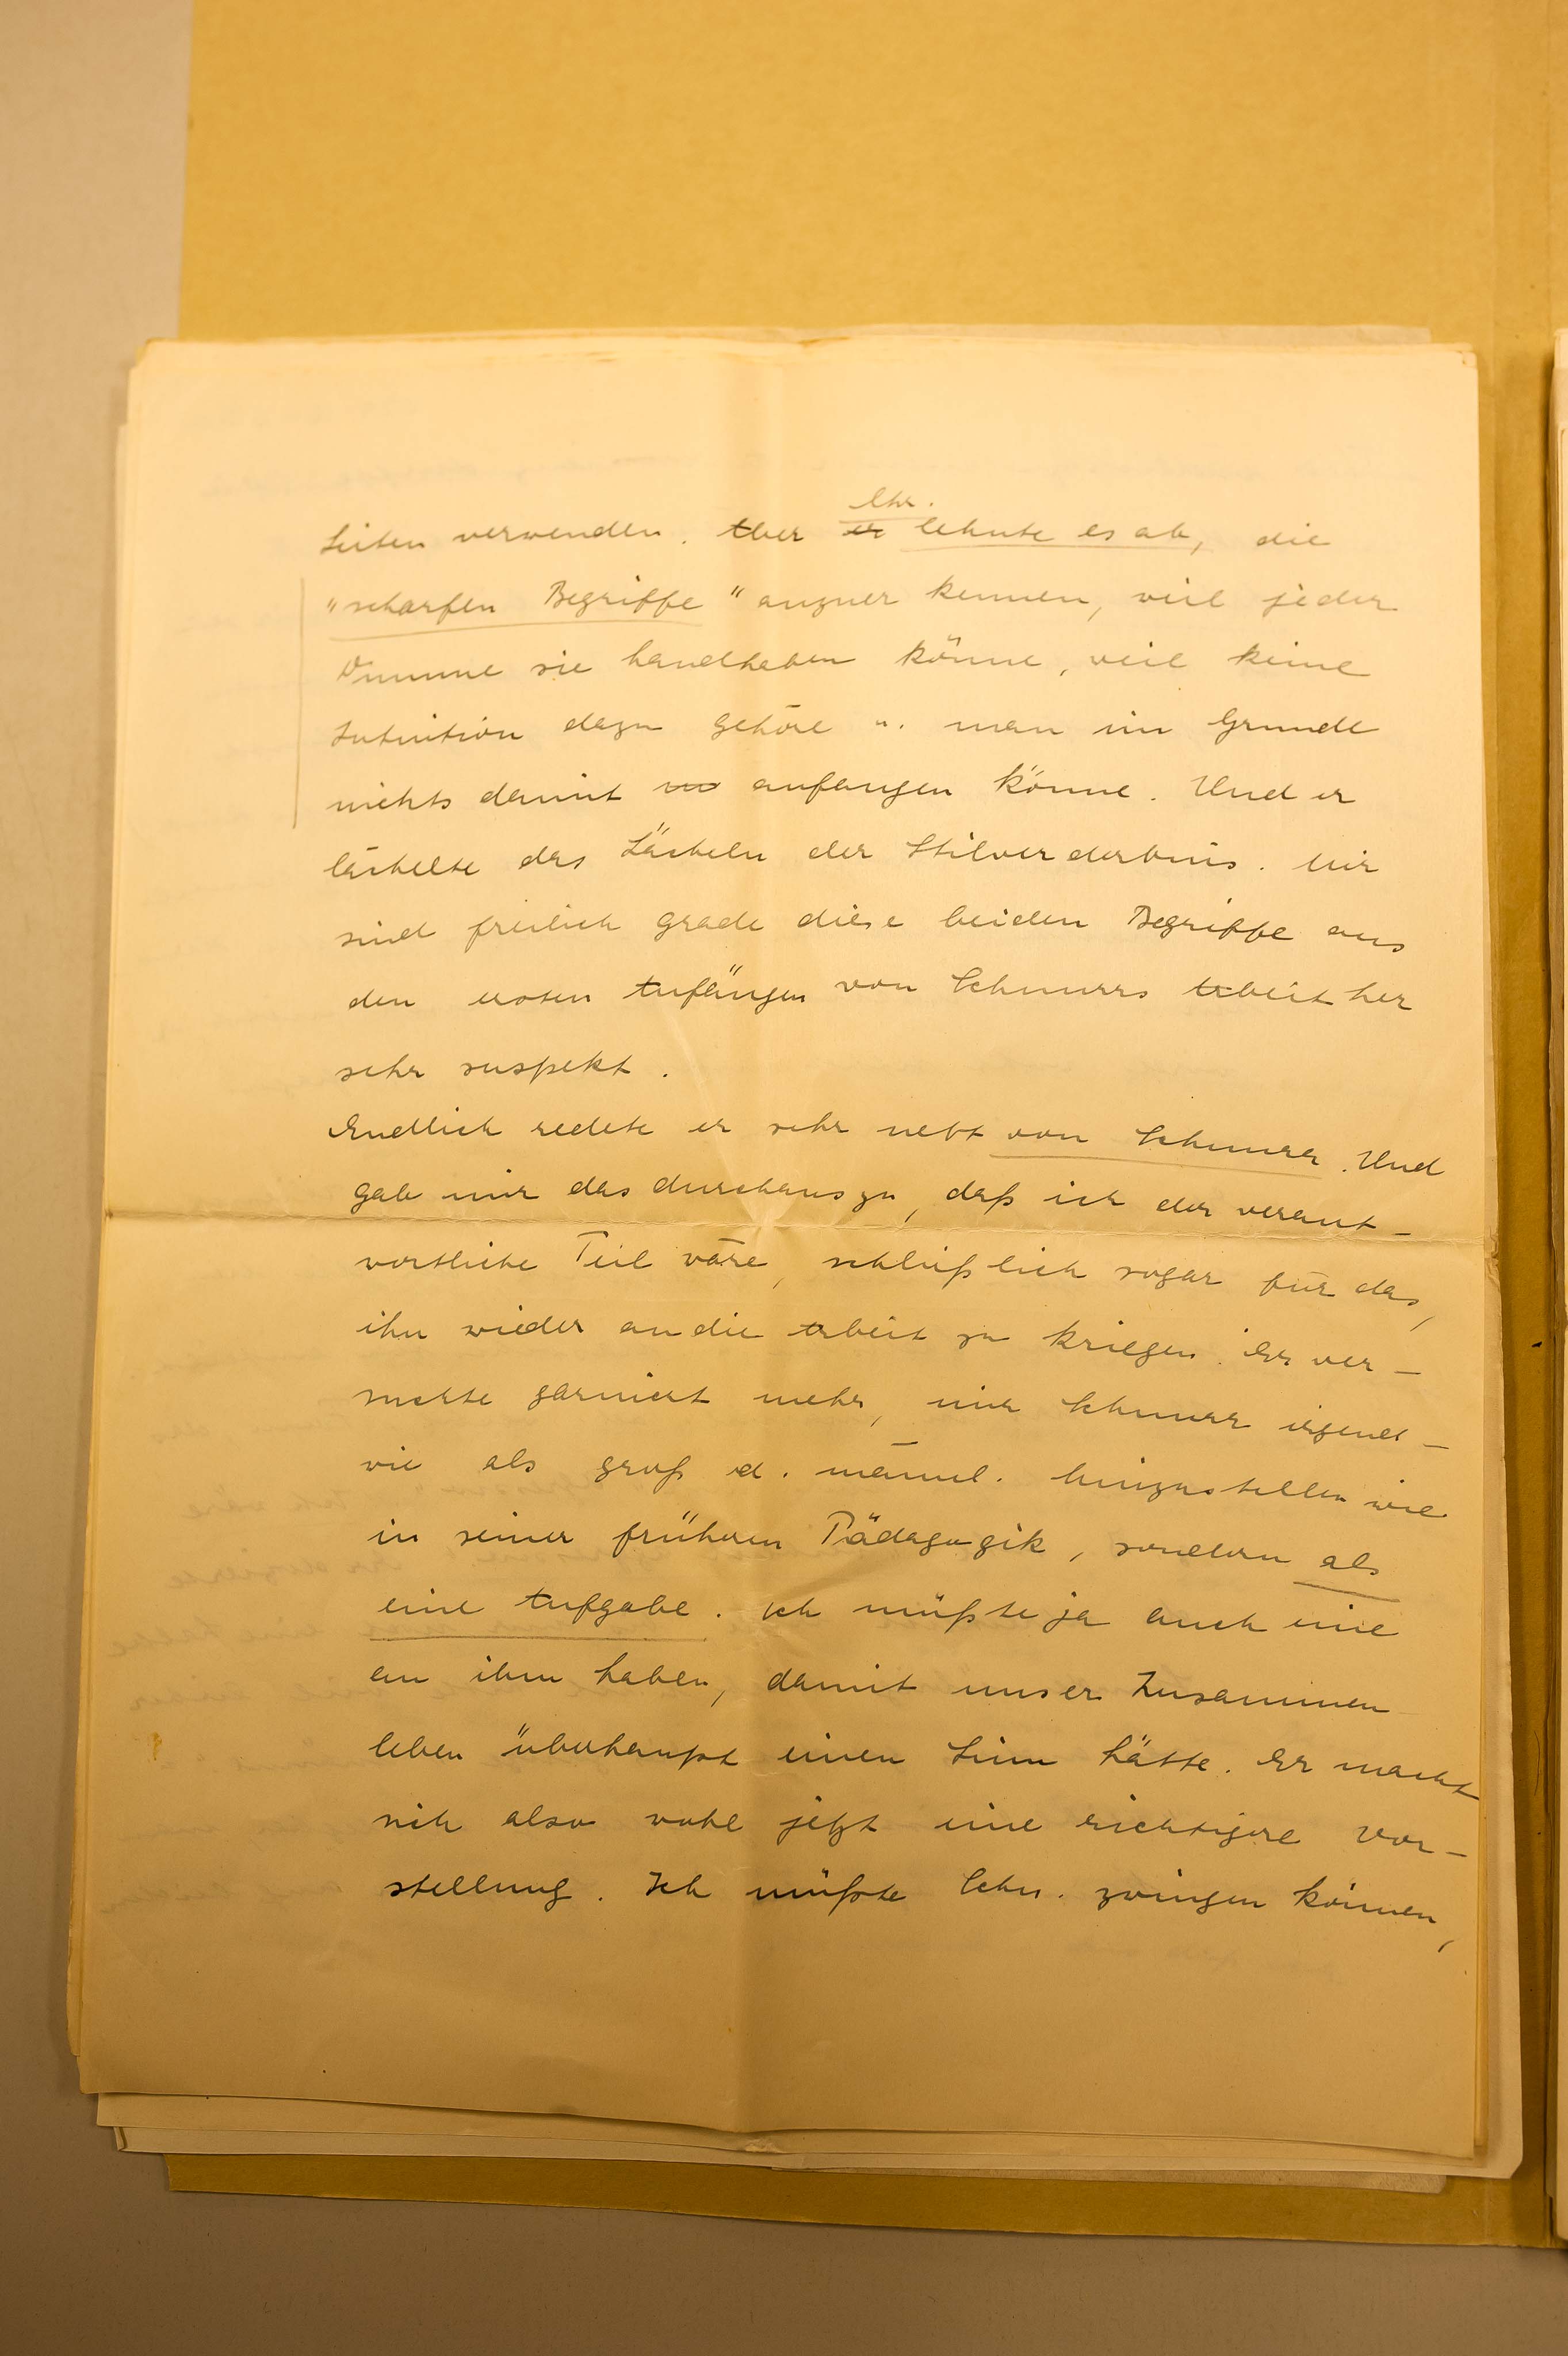 Seiten verwenden. Aber er Chr. lehnte es ab, die
„scharfen Begriffe" anzuer kennen, weil jeder
Dumme sie handhaben könne, weil keine
Intuition dazu gehöre u. man im Grunde
nichts damit anfangen könne. Und er
lächelte das Lächeln der Stilverderbnis. Mir
sind freilich grade diese beiden Begriffe aus
den ersten Anfängen von Schnurrs Arbeit her
sehr suspekt.
Endlich redete er sehr nett von Schnurr. Und
gab mir das durchaus zu, daß ich der verant-
wortliche Teil wäre, schließlich sogar für das,
ihn wieder an die Arbeit zu kriegen. Er ver-
suchte garnicht mehr, mir Schnurr irgend-
wie als groß u. männl. hinzustellen wie
in seiner früheren Pädagogik, sondern als
eine Aufgabe. Ich müßte ja auch eine
an ihm haben, damit unser Zusammen
leben überhaupt einen Sinn hätte. Er macht
sich also wohl jetzt eine richtigere Vor-
stellung. Ich müßte Schn. zwingen können,